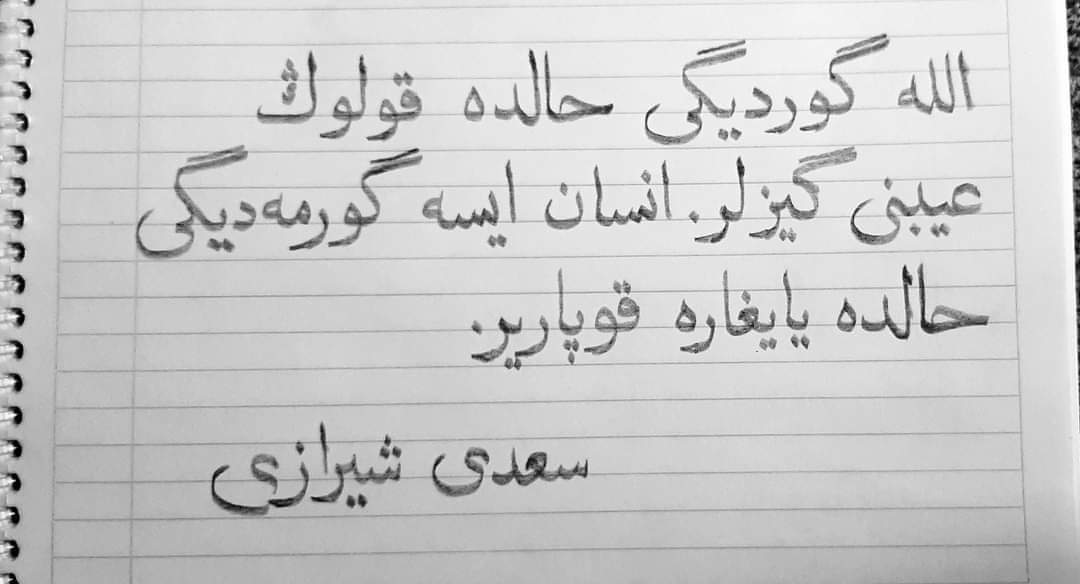 الله گوردیگی حالده قولوڭ
عیبنی گیزلر. انسان ایسه گورمه‌دیگی
حالده یایغاره قوپاریر.
سعدی شیرازی